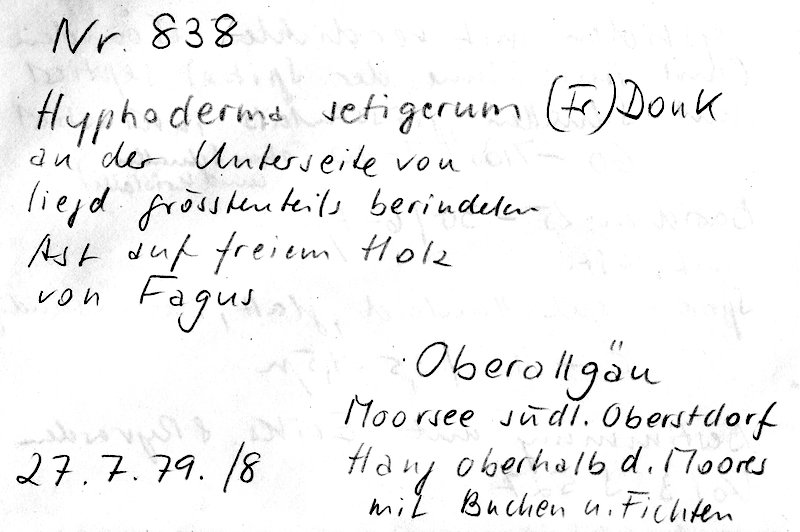 Nr. 838
Hyphoderma setigerum (Fr.) Donk
an der Unterseite von
liegd grösstenteils berindeten
Ast auf freiem Holz
von Fagus
Oberallgäu
Moorsee südl. Oberstdorf
27.7.79./8 Hang oberhalb d. Moores
mit Buchen u. Fichten